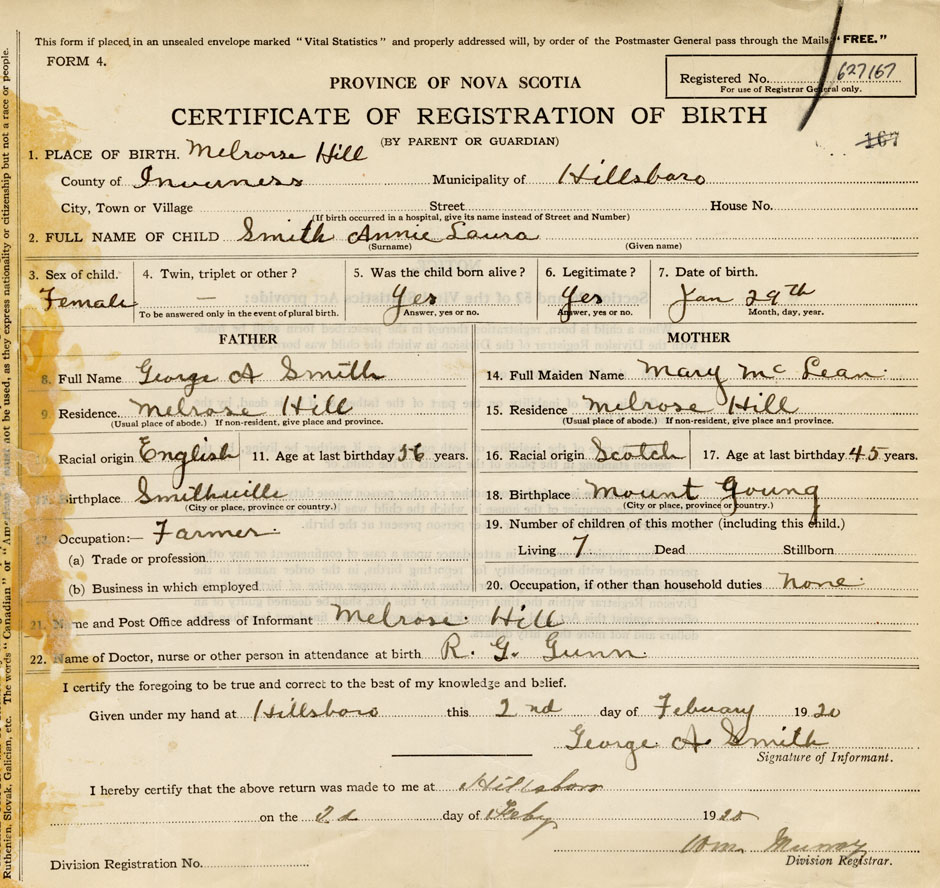 This form if placed in an unsealed envelope marked "Vital Statistics" and properly addressed will, by order of the Postmaster General pass through the Mails "FREE."
FORM 4.
Registered No. 627167
For use of Registrar General only.
PROVINCE OF NOVA SCOTIA
CERTIFICATE OF REGISTRATION OF BIRTH
(BY PARENT OR GUARDIAN)
167
1. PLACE OF BIRTH. Melrose Hill
County of Inverness Municipality of Hillsboro
City, Town or Village Street House No.
(If birth occurred in a hospital, give its name instead of Street and Number)
2. FULL NAME OF CHILD Smith Annie Laura
(Surname) (Given name)
3. Sex of child. 4. Twin, triplet or other? 5. Was the child born alive? 6. Legitimate? 7. Date of birth.
Female — Yes Yes Jan 29th
To be answered only in the event of plural birth. Answer, yes or no. Answer, yes or no. Month, day, year.
FATHER
8. Full Name George A Smith
9. Residence Melrose Hill
(Usual place of abode.) If non-resident, give place and province.
Racial origin English 11. Age at last birthday 56 years.
Birthplace Smithville
(City or place, province or country.)
Occupation:— Farmer
(a) Trade or profession
(b) Business in which employed
MOTHER
14. Full Maiden Name Mary McLean
15. Residence Melrose Hill
(Usual place of abode.) If non-resident, give place and province.
16. Racial origin Scotch 17. Age at last birthday 45 years.
18. Birthplace Mount Young
(City or place, province or country.)
19. Number of children of this mother (including this child.)
Living 7 Dead Stillborn
20. Occupation, if other than household duties None
21. me and Post Office address of Informant Melrose Hill
22. Name of Doctor, nurse or other person in attendance at birth R. G. Gunn
I certify the foregoing to be true and correct to the best of my knowledge and belief.
Given under my hand at Hillsboro this 2nd day of Febuary 1920
George A Smith
Signature of Informant.
I hereby certify that the above return was made to me at Hillsboro
on the 2d day of Feby 1920
Wm. Murray
Division Registrar.
Division Registration No.
Ruthenien, Slovak, Galician, etc. The words "Canadian" or "Ame not be used, as they express nationality or citizenship but not a race or people.